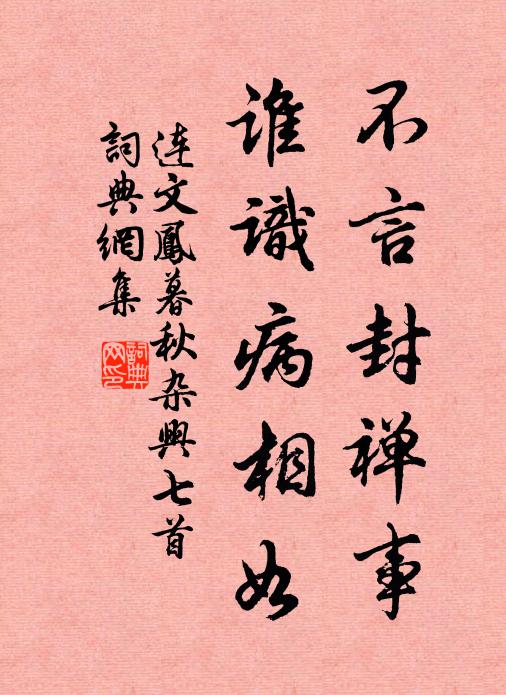 不言封禅事
谁識病相如
连文鳳暮秋杂興七首
詞典網集
詞典網印